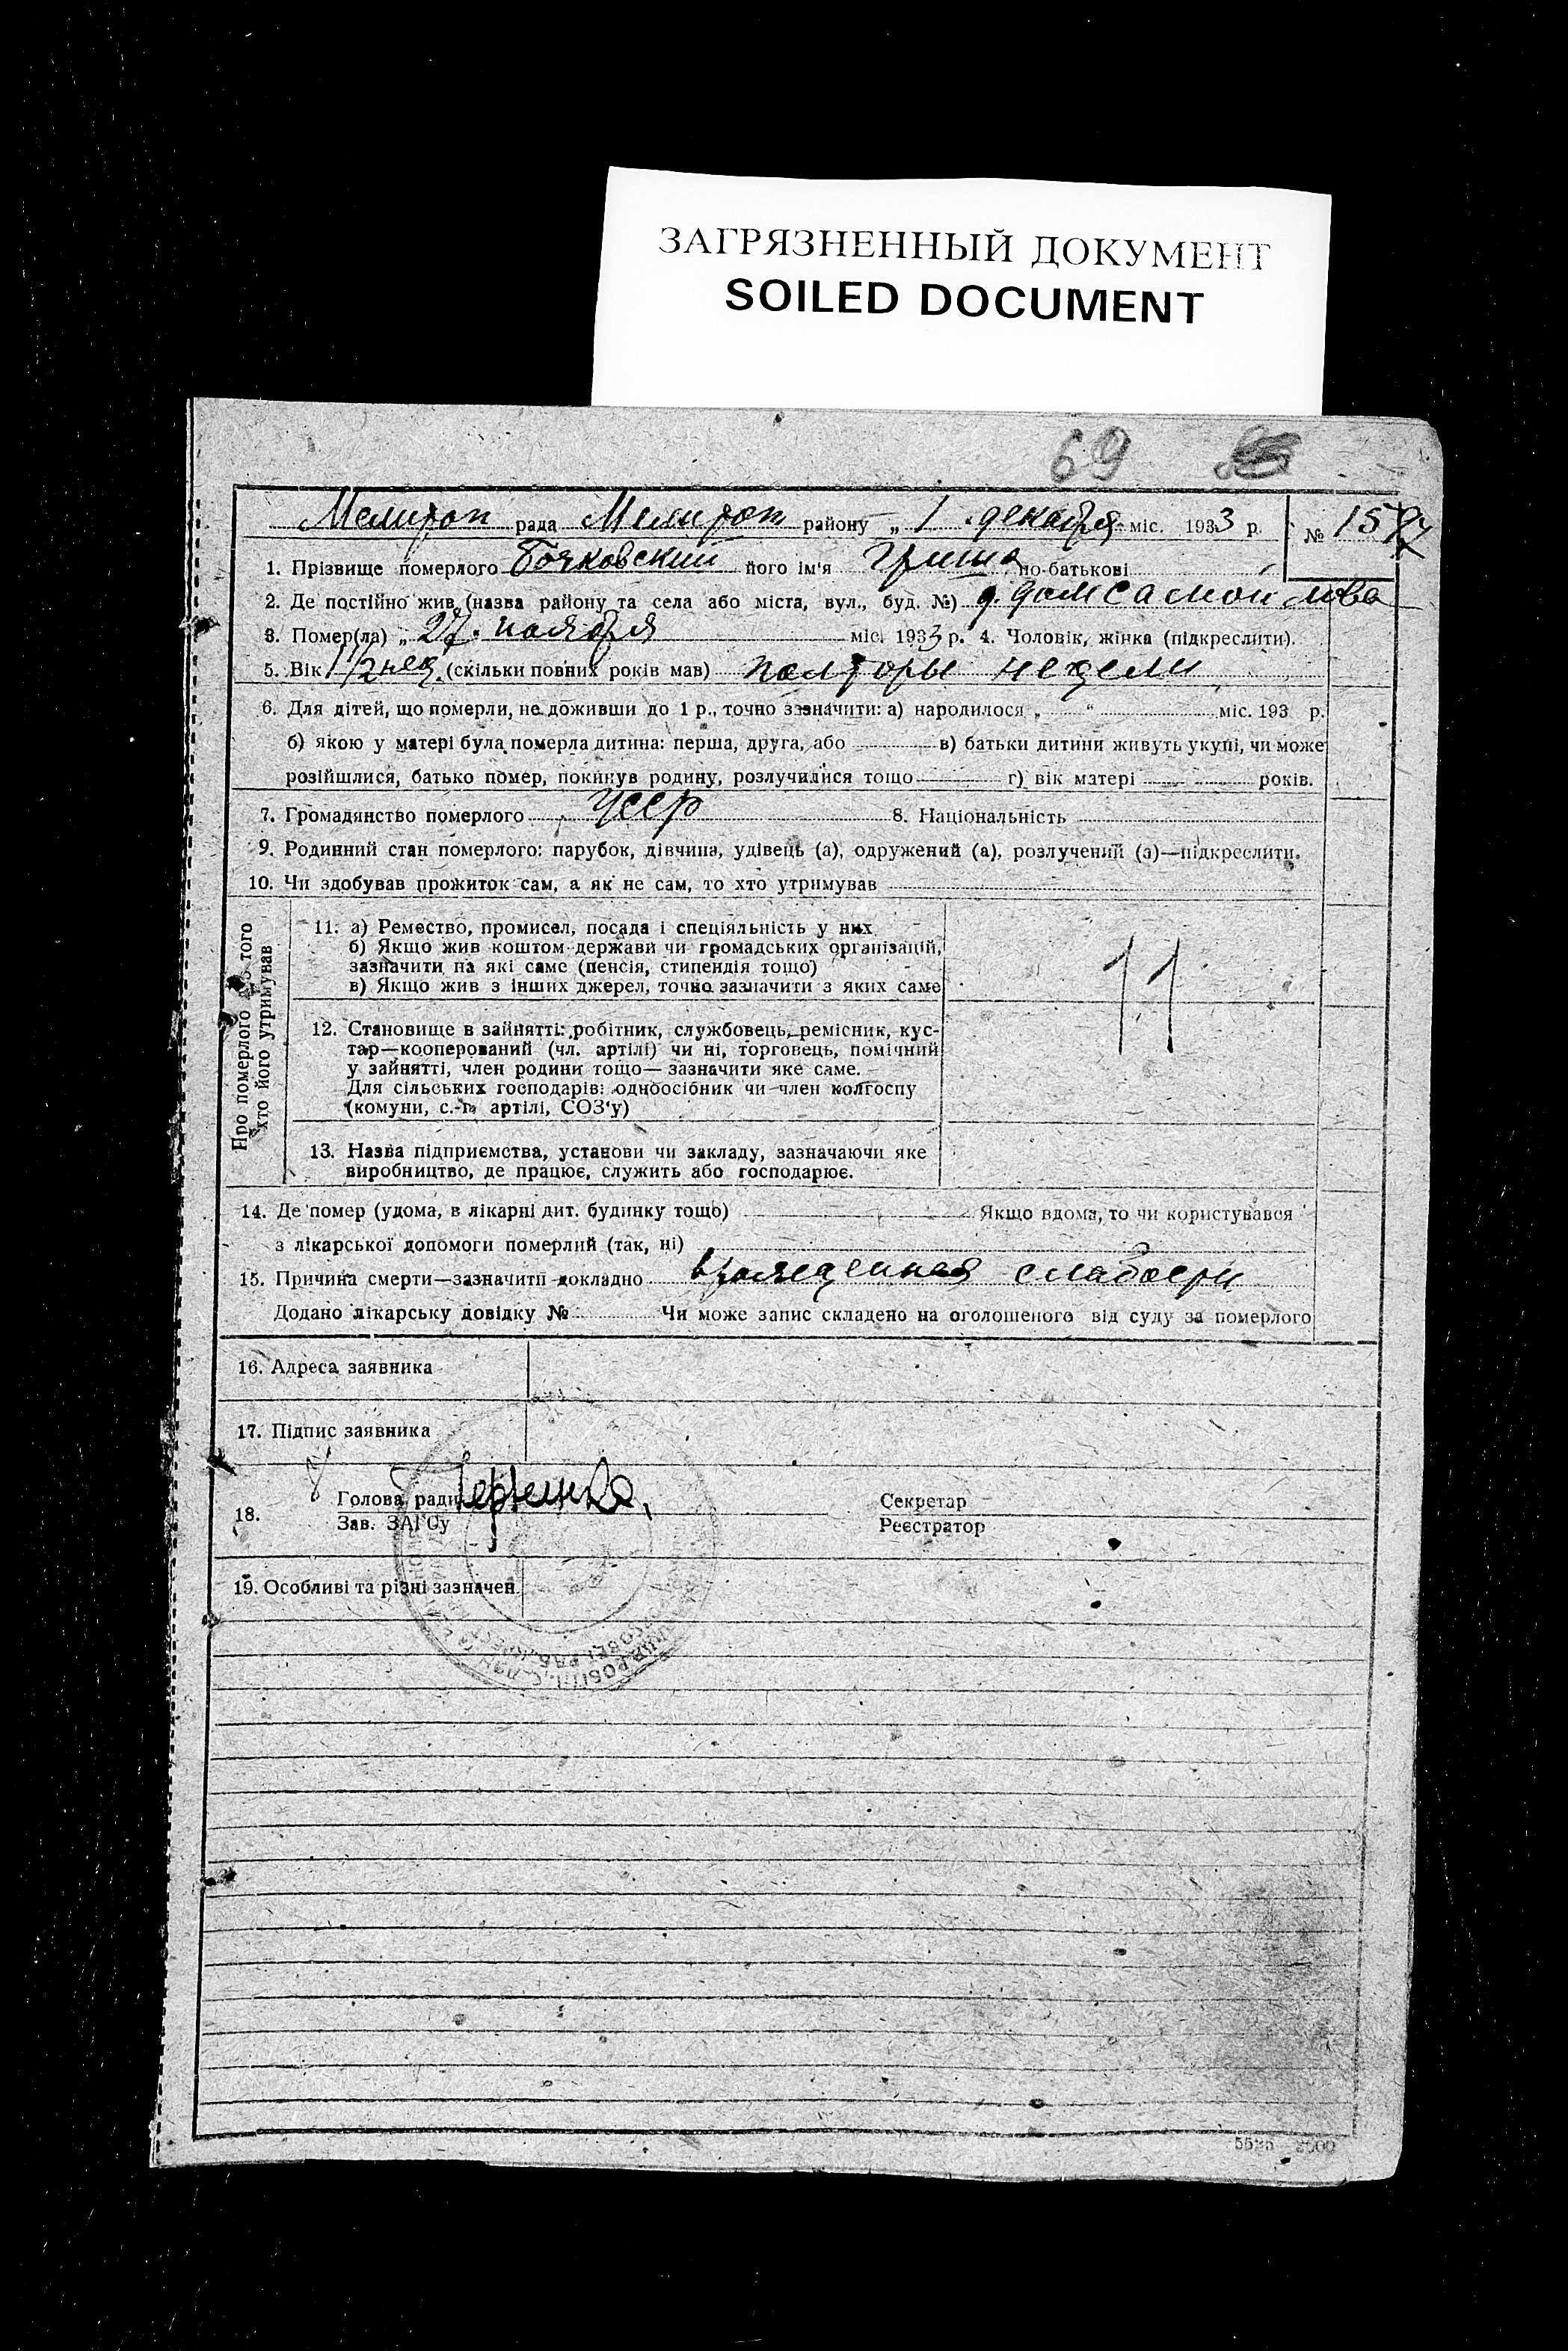 ЗАГРЯЗНЕННЫЙ ДОКУМЕНТ
SOILED DOCUMENT
69
Мелитоп рада Мелитоп району „ 1 декабря міс. 1933 р. №
1. Прізвище померлого Бочковский його ім'я Гриша по-батькові
2. Де постійно жив (назва району та села або міста, вул., буд. №) д. дом Самойлова
3. Помер(ла) „ 27. ноября міс. 1933 р. 4. Чоловік, жінка (підкреслити).
5. Вік 1 1/2 нед. (скільки повних років мав) полторы недели
6. Для дітей, що померли, не доживши до 1 р., точно зазначити: а) народилося „ “ міс. 193 р.
б) якою у матері була померла дитина: перша, друга, або в) батьки дитини живуть укупі, чи може
розійшлися, батько помер, покинув родину, розлучилися тощо г) вік матері років.
7. Громадянство померлого УССР 8. Національність
9. Родинний стан померлого: парубок, дівчина, удівець (а), одружений (а), розлучений (а)—підкреслити.
10. Чи здобував прожиток сам, а як не сам, то хто утримував
Про померлого того
хто його утримував
11. а) Ремество, промисел, посада і спеціяльність у них
б) Якщо жив коштом держави чи громадських організацій,
зазначити на які саме (пенсія, стипендія тощо)
в) Якщо жив з інших джерел, точно зазначити з яких саме
11
12. Становище в зайнятті: робітник, службовець, ремісник, кус-
тар—кооперований (чл. артілі) чи ні, торговець, помічний
у зайнятті, член родини тощо—зазначити яке саме.
Для сільських господарів: одноосібник чи член колгоспу
(комуни, с.-г. артілі, СОЗ'у)
13. Назва підприємства, установи чи закладу, зазначаючи яке
виробництво, де працює, служить або господарює.
14. Де помер (удома, в лікарні дит. будинку тощо) Якщо вдома, то чи користувався
з лікарської допомоги померлий (так, ні)
15. Причина смерти—зазначити докладно врожденная слабость
Додано лікарську довідку № Чи може запис складено на оголошеного від суду за померлого
16. Адреса заявника
17. Підпис заявника
18. Голова ради Секретар
Зав. ЗАГСу Реєстратор
19. Особливі та різні зазначен.